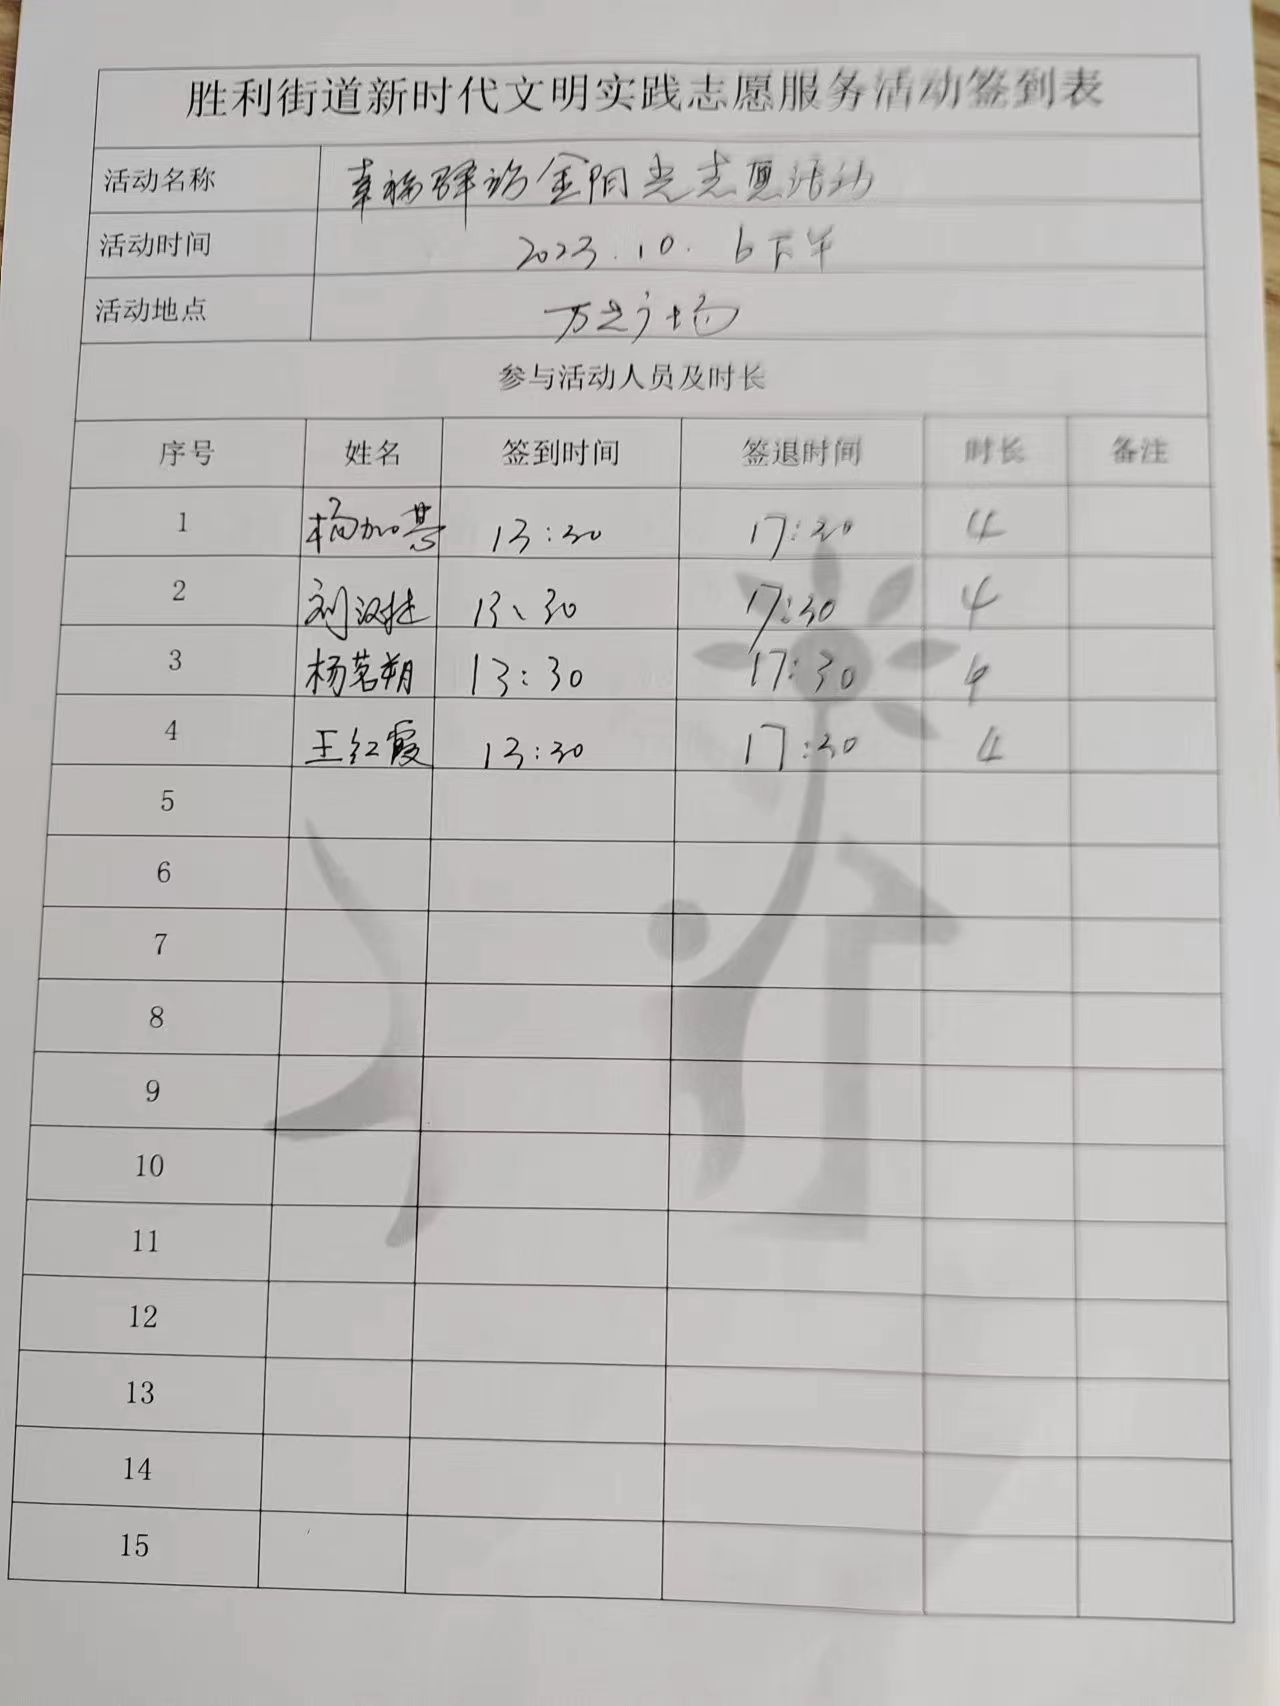 胜利街道新时代文明实践志愿服务活动签到表
活动名称 幸福驿站金阳光志愿活动
活动时间 2023.10.6下午
活动地点 万达广场
参与活动人员及时长
序号 姓名 签到时间 签退时间 时长 备注
1 杨加慧 13:30 17:30 4
2 刘汉 13:30 17:30 4
3 杨茗朔 13:30 17:30 4
4 王红霞 13:30 17:30 4
5
6
7
8
9
10
11
12
13
14
15